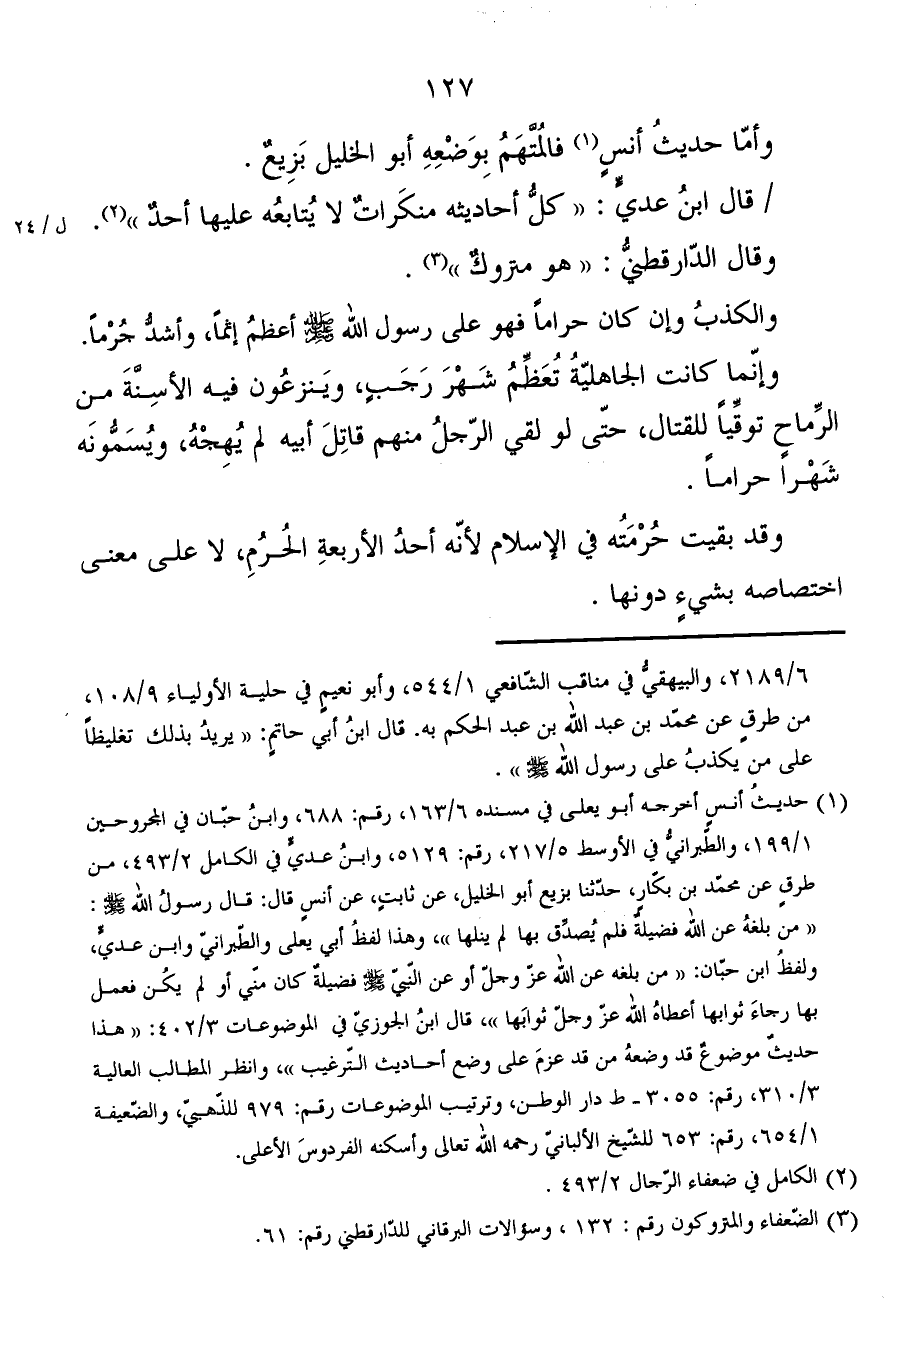 ١٢٧
وأمّا حديثُ أنسٍ(١) فالمُتَّهَمُ بِوَضْعِهِ أبو الخليل بَزِيعٌ .
/ قال ابنُ عديٍّ : « كلُّ أحاديثه منكَراتٌ لا يُتابعُه عليها أحدٌ »(٢). ل/٢٤
وقال الدّارقطنيُّ : « هو متروكٌ »(٣) .
والكذبُ وإن كان حراماً فهو على رسول الله ﷺ أعظمُ إثماً، وأشدُّ جُرْماً.
وإنّما كانت الجاهليّةُ تُعَظِّمُ شَهْرَ رَجَبٍ، ويَنزعُون فيه الأسِنَّةَ من
الرِّماحِ توقِّياً للقتال، حتّى لو لقي الرّجلُ منهم قاتِلَ أبيه لم يُهِجْهُ، ويُسَمُّونَه
شَهْراً حراماً .
وقد بقيت حُرْمَتُه في الإسلام لأنّه أحدُ الأربعةِ الحُرُمِ، لا على معنى
اختصاصه بشيءٍ دونها .
٢١٨٩/٦، والبيهقيُّ في مناقب الشّافعي ٥٤٤/١، وأبو نعيمٍ في حلية الأولياء ١٠٨/٩،
من طرقٍ عن محمّد بن عبد الله بن عبد الحكم به. قال ابنُ أبي حاتمٍ: « يريدُ بذلك تغليظاً
على من يكذبُ على رسول الله ﷺ » .
(١) حديثُ أنسٍ أخرجه أبو يعلى في مسنده ١٦٣/٦، رقم: ٦٨٨، وابنُ حبّان في المجروحين
١٩٩/١، والطّبرانيُّ في الأوسط ٢١٧/٥، رقم: ٥١٢٩، وابنُ عديٍّ في الكامل ٤٩٣/٢، من
طرقٍ عن محمّد بن بكّارٍ، حدّثنا بزيع أبو الخليل، عن ثابتٍ، عن أنسٍ قال: قال رسولُ الله ﷺ :
« من بلغهُ عن الله فضيلةٌ فلم يُصدِّق بها لم ينلها »، وهذا لفظُ أبي يعلى والطّبرانيّ وابن عديٍّ،
ولفظُ ابن حبّان: « من بلغه عن الله عزّ وجلّ أو عن النّبيّ ﷺ فضيلةٌ كان منّي أو لم يكُن فعمل
بها رجاءَ ثوابها أعطاهُ الله عزّ وجلّ ثوابَها »، قال ابنُ الجوزيّ في الموضوعات ٤٠٢/٣: « هذا
حديثٌ موضوعٌ قد وضعهُ من قد عزمَ على وضع أحاديث التّرغيب »، وانظر المطالب العالية
٣١٠/٣، رقم: ٣٠٥٥ - ط دار الوطن، وترتيب الموضوعات رقم: ٩٧٩ للذّهبيّ، والضّعيفة
٦٥٤/١، رقم: ٦٥٣ للشّيخ الألبانيّ رحمه الله تعالى وأسكنه الفردوسَ الأعلى.
(٢) الكامل في ضعفاء الرّجال ٤٩٣/٢ .
(٣) الضّعفاء والمتروكون رقم : ١٣٢ ، وسؤالات البرقاني للدّارقطني رقم: ٦١.